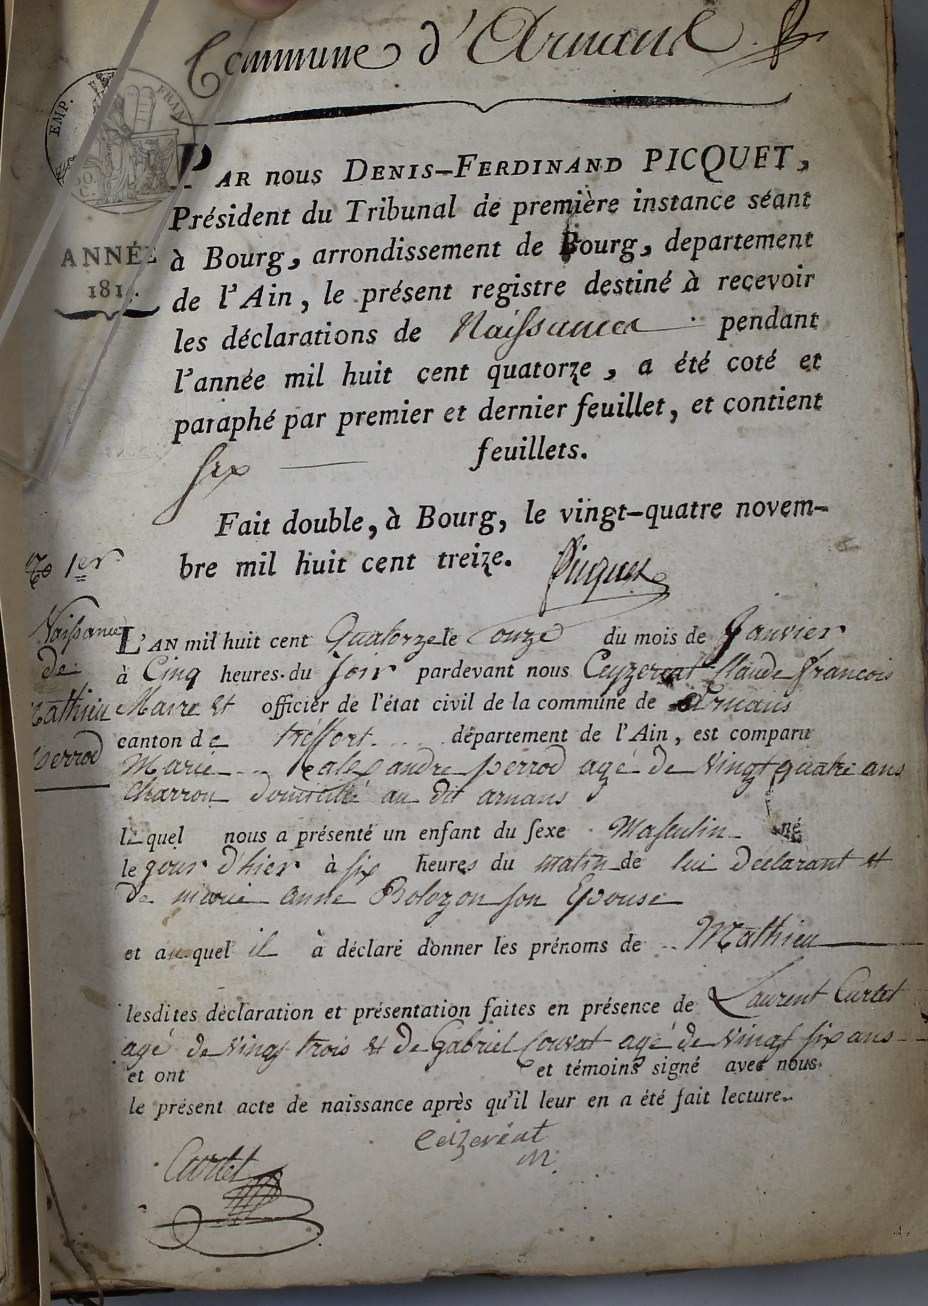 Commune d'Arnans
EMP. FRAN
ANNÉE
181.
PAR nous DENIS-FERDINAND PICQUET,
Président du Tribunal de première instance séant
à Bourg, arrondissement de Bourg, departement
de l'Ain, le présent registre destiné à recevoir
les déclarations de Naissances pendant
l'année mil huit cent quatorze, a été coté et
paraphé par premier et dernier feuillet, et contient
six feuillets.
Fait double, à Bourg, le vingt-quatre novem-
bre mil huit cent treize. Picquet
1er
Naissance
de
Mathieu
perrod
L'AN mil huit cent Quatorze le onze du mois de Janvier
à Cinq heures du soir pardevant nous Ceyzeriat Claude francois
Maire et officier de l'état civil de la commune de Arnans
canton de tréffort département de l'Ain, est comparu
Marie alexandre perrod agé de vingt quatre ans
charron domicilié au dit arnans
lequel nous a présenté un enfant du sexe Masculin né
le jour d'hier à six heures du matin de lui déclarant et
de marie anne Bolozon son Epouse
et auquel il à déclaré donner les prénoms de Mathieu
lesdites déclaration et présentation faites en présence de Laurent Curtet
agé de vingt trois et de Gabriel Convat agé de vingt six ans
et ont et témoins signé avec nous
le présent acte de naissance après qu'il leur en a été fait lecture.
Ceizeriat
m.
Curtet